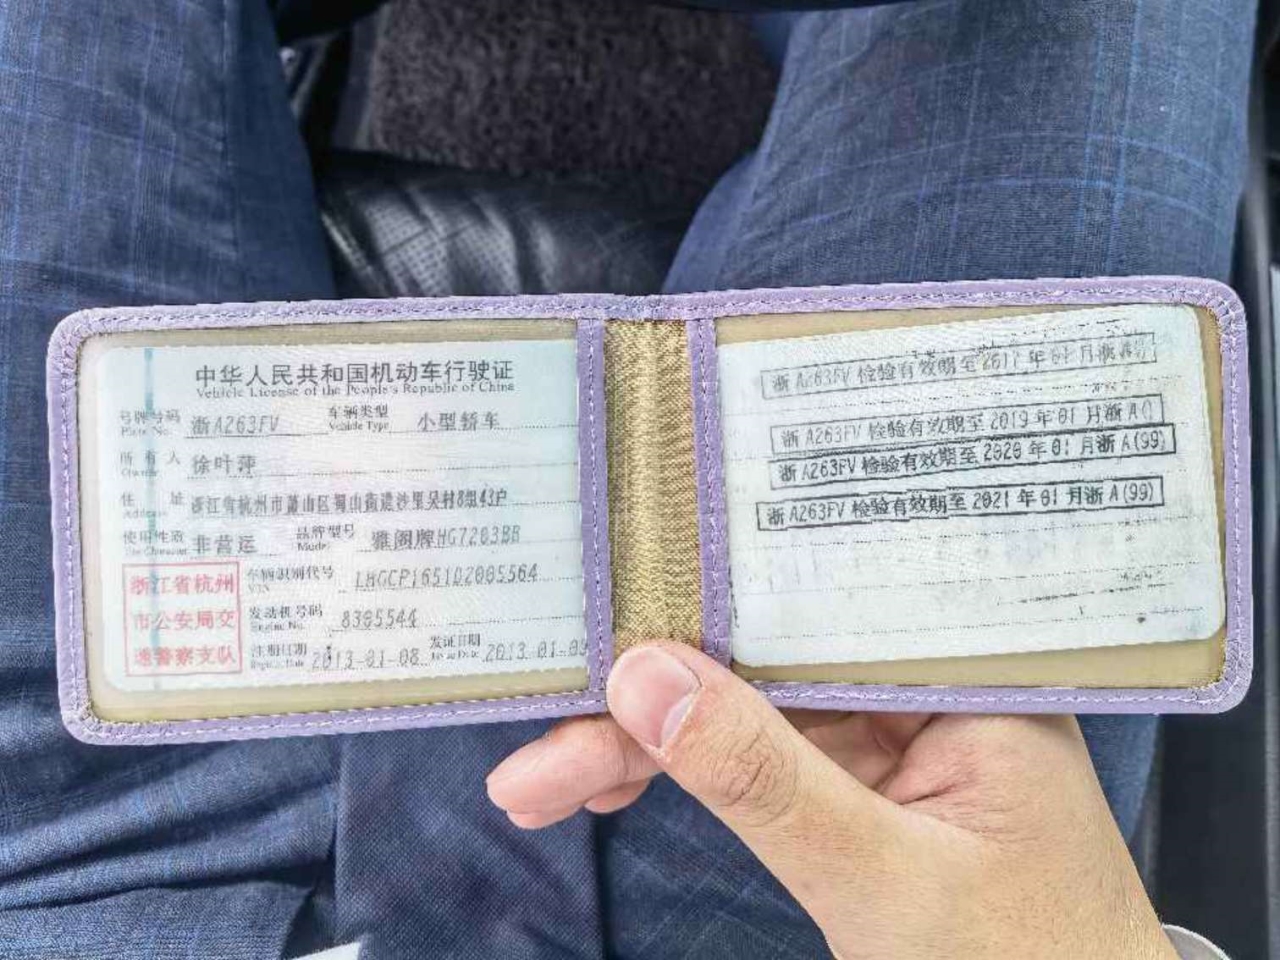 中华人民共和国机动车行驶证
Vehicle License of the People's Republic of China
号牌号码 浙A263FV 车辆类型 小型轿车
Plate No. Vehicle Type
所有人 徐叶萍
Owner
住址 浙江省杭州市萧山区蜀山街道沙里吴村8组43户
Address
使用性质 非营运 品牌型号 雅阁牌HG7203BB
Use Character Model
浙江省杭州
市公安局交
通警察支队
车辆识别代号 LHGCP165102005564
VIN
发动机号码 8305544
Engine No.
注册日期 2013-01-08 发证日期 2013-01-0
Register Date Issue Date
浙A263FV 检验有效期至2017年01月浙A
浙A263FV 检验有效期至2019年01月浙A()
浙A263FV 检验有效期至2020年01月浙A(99)
浙A263FV 检验有效期至2021年01月浙A(99)